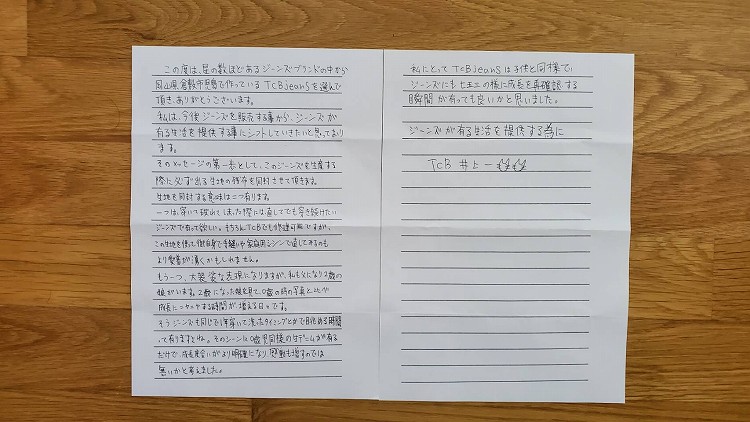 この度は、星の数ほどあるジーンズブランドの中から
岡山県倉敷市児島で作っているTCBJeansを選んで
頂き、ありがとうございます。
私は、今後ジーンズを販売する事から、ジーンズが
有る生活を提供する事にシフトしていきたいと思っており
ます。
そのメッセージの第一歩として、このジーンズを生産する
際に必ず出る生地の残布を同封させて頂きます。
生地を同封する意味は二つ有ります。
一つは、穿いて破れてしまった際には直してでも穿き続けたい
ジーンズで有って欲しい。もちろんTCBでも修理可能ですが、
この生地を使って御自身で手縫いや家庭用ミシンで直してみるのも
より愛着が湧くかもしれません。
もう一つ、大袈裟な表現になりますが、私も父になり2歳の
娘がいます。2歳になった娘を見て、0歳の時の写真と比べ
成長にニヤニヤする時間が増える日々です。
そうジーンズも同じで1年穿いて洗ったタイミングとかで目を細める時間
って有りますよね。そのシーンに0歳児同様の生デニムが有る
だけで、成長度合いがより明確になり感動も増すのでは
無いかと考えました。
私にとってTCBJeansは子供と同様で、
ジーンズにも七五三の様に成長を再確認する
瞬間が有っても良いかと思いました。
ジーンズが有る生活を提供する為に
TCB 井上一